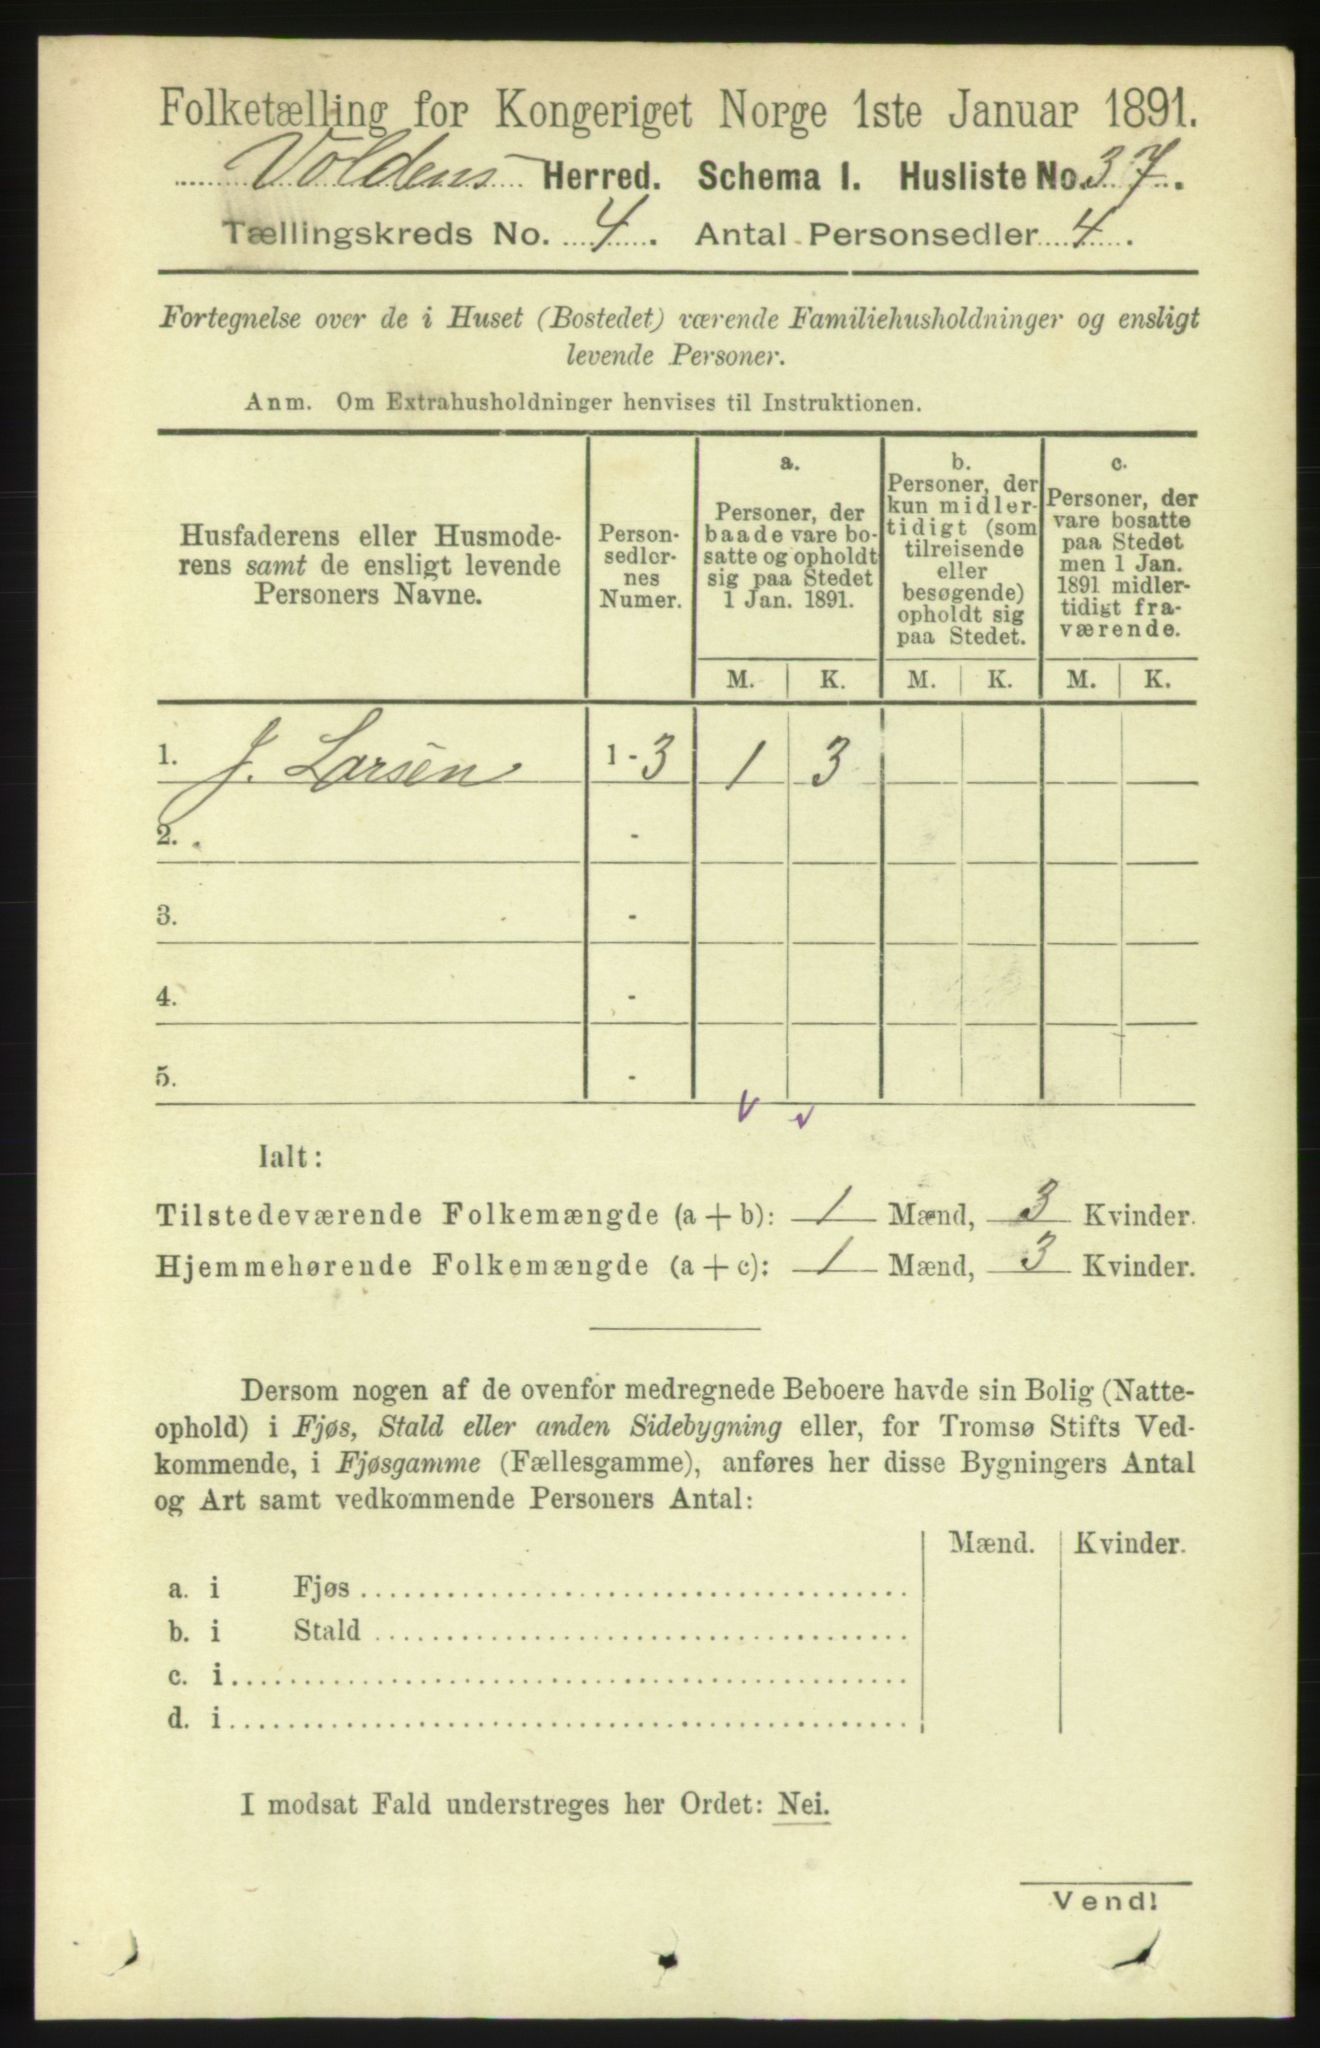 Folketælling for Kongeriget Norge 1ste Januar 1891.
Voldens Herred. Schema I. Husliste No. 37.
Tællingskreds No. 4. Antal Personsedler 4.
Fortegnelse over de i Huset (Bostedet) værende Familiehusholdninger og ensligt
levende Personer.
Anm. Om Extrahusholdninger henvises til Instruktionen.
Husfaderens eller Husmode-
rens samt de ensligt levende
Personers Navne.
Person-
sedler-
nes
Numer.
a.
Personer, der
baade vare bo-
satte og opholdt
sig paa Stedet
1 Jan. 1891.
b.
Personer, der
kun midler-
tidigt (som
tilreisende
eller
besøgende)
opholdt sig
paa Stedet.
c.
Personer, der
vare bosatte
paa Stedet
men 1 Jan.
1891 midler-
tidigt fra-
værende.
M. K. M. K. M. K.
1. J. Larsen 1-3 1 3
2. -
3. -
4. -
5. -
Ialt:
Tilstedeværende Folkemængde (a + b): 1 Mænd, 3 Kvinder.
Hjemmehørende Folkemængde (a + c): 1 Mænd, 3 Kvinder.
Dersom nogen af de ovenfor medregnede Beboere havde sin Bolig (Natte-
ophold) i Fjøs, Stald eller anden Sidebygning eller, for Tromsø Stifts Ved-
kommende, i Fjøsgamme (Fællesgamme), anføres her disse Bygningers Antal
og Art samt vedkommende Personers Antal:
Mænd. Kvinder.
a. i Fjøs
b. i Stald
c. i
d. i
I modsat Fald understreges her Ordet: Nei.
Vend!